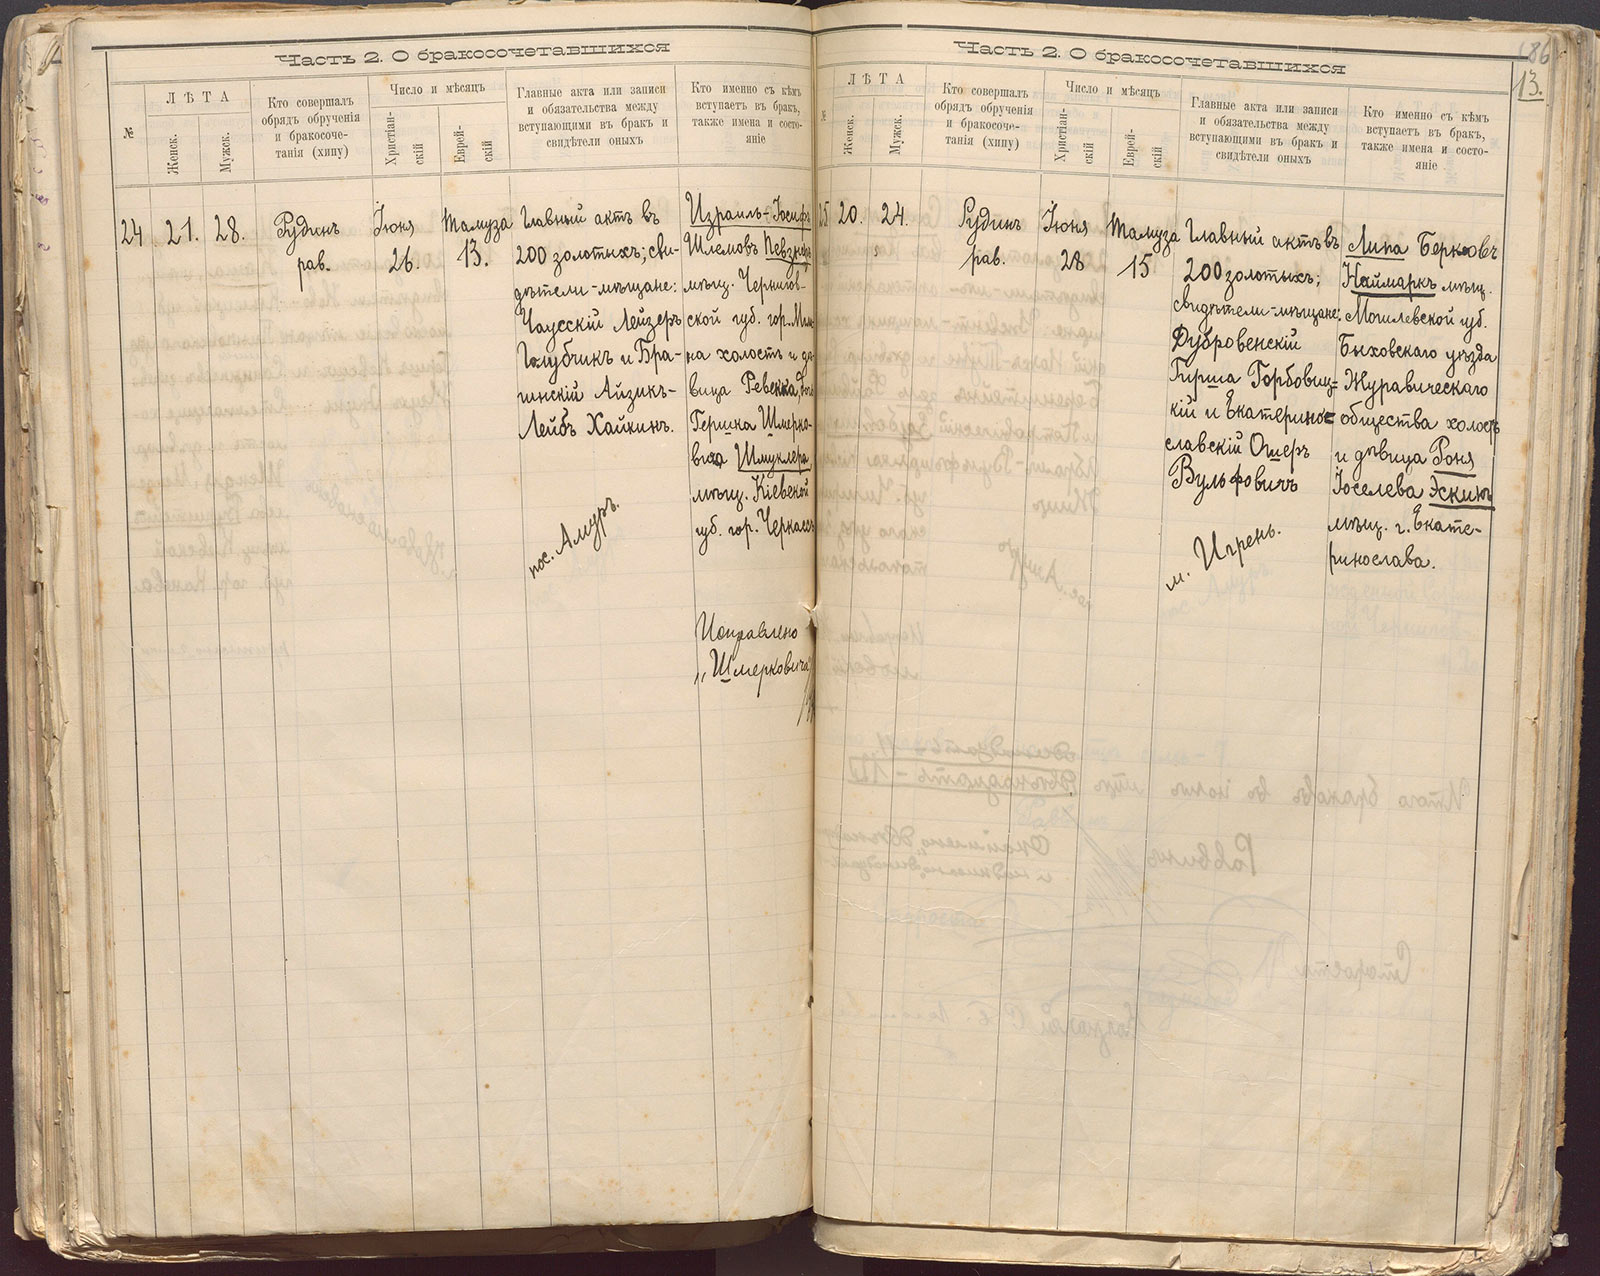 Часть 2. О бракосочетавшихся
№
ЛѢТА
Женск.
Мужск.
Кто совершалъ
обрядъ обрученія
и бракосоче-
танія (хипу)
Число и мѣсяцъ
Христіан-
скій
Еврей-
скій
Главные акта или записи
и обязательства между
вступающими въ бракъ и
свидѣтели оныхъ
Кто именно съ кѣмъ
вступаетъ въ бракъ,
также имена и состо-
яніе
24
21.
28.
Рудинъ
рав.
Іюня
26.
Тамуза
13.
Главный актъ въ
200 золотыхъ; сви-
дѣтели-мѣщане:
Чаусскій Лейзеръ
Голубчикъ и Бра-
гинскій Айзикъ-
Лейбъ Хайкинъ.
пос. Амуръ.
Израиль-Іосифъ
Шлемовъ Певзнеръ
мѣщ. Чернигов-
ской губ. гор. Мгли-
на холостъ и дѣ-
вица Ревекка, дочь
Гершна Шмерко-
вича Шмуклера,
мѣщ. Кіевской
губ. гор. Черкассъ
Исправлено
„Шмерковича"
Часть 2. О бракосочетавшихся
86
13.
№
ЛѢТА
Женск.
Мужск.
Кто совершалъ
обрядъ обрученія
и бракосоче-
танія (хипу)
Число и мѣсяцъ
Христіан-
скій
Еврей-
скій
Главные акта или записи
и обязательства между
вступающими въ бракъ и
свидѣтели оныхъ
Кто именно съ кѣмъ
вступаетъ въ бракъ,
также имена и состо-
яніе
25
20.
24.
Рудинъ
рав.
Іюня
28
Тамуза
15
Главный актъ въ
200 золотыхъ;
свидѣтели-мѣщане:
Дубровенскій
Гирша Горбовиц-
кій и Екатерино-
славскій Ошеръ
Вульфовичъ
м. Игрень.
Липа Берковъ
Наймаркъ мѣщ.
Могилевской губ.
Быховскаго уѣзда
Журавическаго
общества холостъ
и дѣвица Роня
Іоселева Эскинъ
мѣщ. г. Екате-
ринослава.